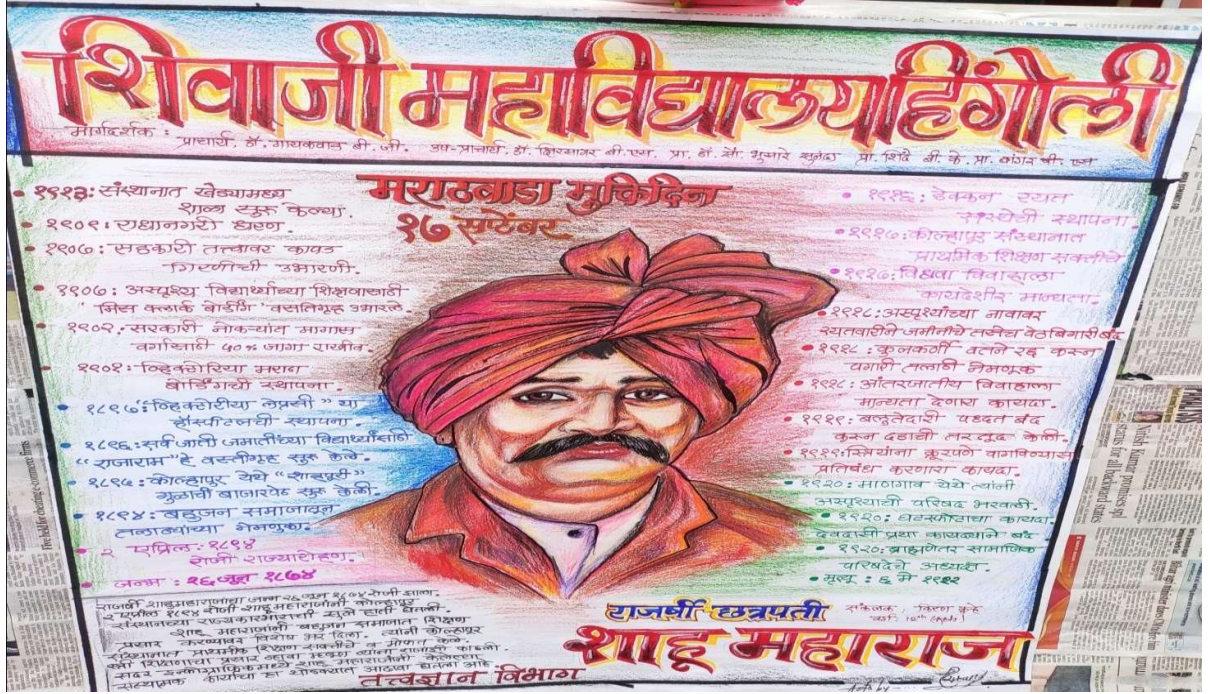 शिवाजी महाविद्यालय हिंगोली
मार्गदर्शक :
प्राचार्य. डॉ. गायकवाड बी. जी. उप-प्राचार्य. डॉ. क्षिरसागर बी. एस. प्रा. डॉ. सौ. भुसारे सुनंदा प्रा. शिंदे बी. के. प्रा. बांगर बी. एस
मराठवाडा मुक्तिदिन
१७ सप्टेंबर
• १९१३: संस्थानात खेड्यामध्य
शाळा सुरू केल्या.
• १९०९: राधानगरी धरण.
• १९०७: सहकारी तत्त्वावर कापड
गिरणीची उभारणी.
• १९०७: अस्पृश्य विद्यार्थ्यांच्या शिक्षणासाठी
"मिस क्लार्क बोर्डींग" वसतिगृह उभारले
• १९०२: सरकारी नोकऱ्यांत मागास
वर्गासाठी ५०% जागा राखीव.
• १९०१: व्हिक्टोरिया मराठा
बोर्डिंगची स्थापना.
• १८९७: "व्हिक्टोरीया लेप्रसी" या
हॉस्पीटलची स्थापना.
• १८९६: सर्व जाती जमातींच्या विद्यार्थ्यांसाठी
"राजाराम" हे वस्तीगृह सुरू केले.
• १८९५: कोल्हापूर येथे "शाहूपुरी"
गुळाची बाजारपेठ सुरू केली.
• १८९४: बहुजन समाजातून
तलाठ्यांच्या नेमणुका.
• २ एप्रिल: १८९४
रोजी राज्यारोहण.
• जन्म : २६ जून १८७४
• १९१६: डेक्कन रयत
संस्थेची स्थापना.
• १९१७: कोल्हापूर संस्थानात
प्राथमिक शिक्षण सक्तीचे
• १९१७: विधवा विवाहाला
कायदेशीर मान्यता.
• १९१८: अस्पृश्यांच्या नावावर
रयतवारीने जमीनीचे तसेच वेठबिगारी बंद
• १९१८: कुलकर्णी वतने रद्द करून
पगारी तलाठी नेमणूक
• १९१८: आंतरजातीय विवाहाला
मान्यता देणारा कायदा.
• १९१९: बलुतेदारी पध्दत बंद
करून दंडाची तरतूद केली.
• १९१९: स्त्रियांना क्रूरपणे वागविण्यास
प्रतिबंध करणारा कायदा.
• १९२०: माणगाव येथे त्यांनी
अस्पृश्यांची परिषद भरवली.
• १९२०: घटस्फोटाचा कायदा.
देवदासी प्रथा कायद्याने बंद
• १९२०: ब्राह्मणेतर सामाजिक
परिषदेचे अध्यक्ष.
• मृत्यू : ६ मे १९२२
राजर्षी शाहूमहाराजांचा जन्म २६ जून १८७४ रोजी झाला.
२ एप्रील १८९४ रोजी शाहू महाराजांनी कोल्हापूर
संस्थानच्या राज्यकारभाराची सुत्रे हाती घेतली.
शाहू महाराजांनी बहुजन समाजात शिक्षण
प्रसार करण्यावर विशेष भर दिला. त्यांनी कोल्हापूर
संस्थानात प्राथमीक शिक्षण सक्तीचे व मोफत केले
राजर्षी छत्रपती
शाहू महाराज
तत्वज्ञान विभाग
संकलक :